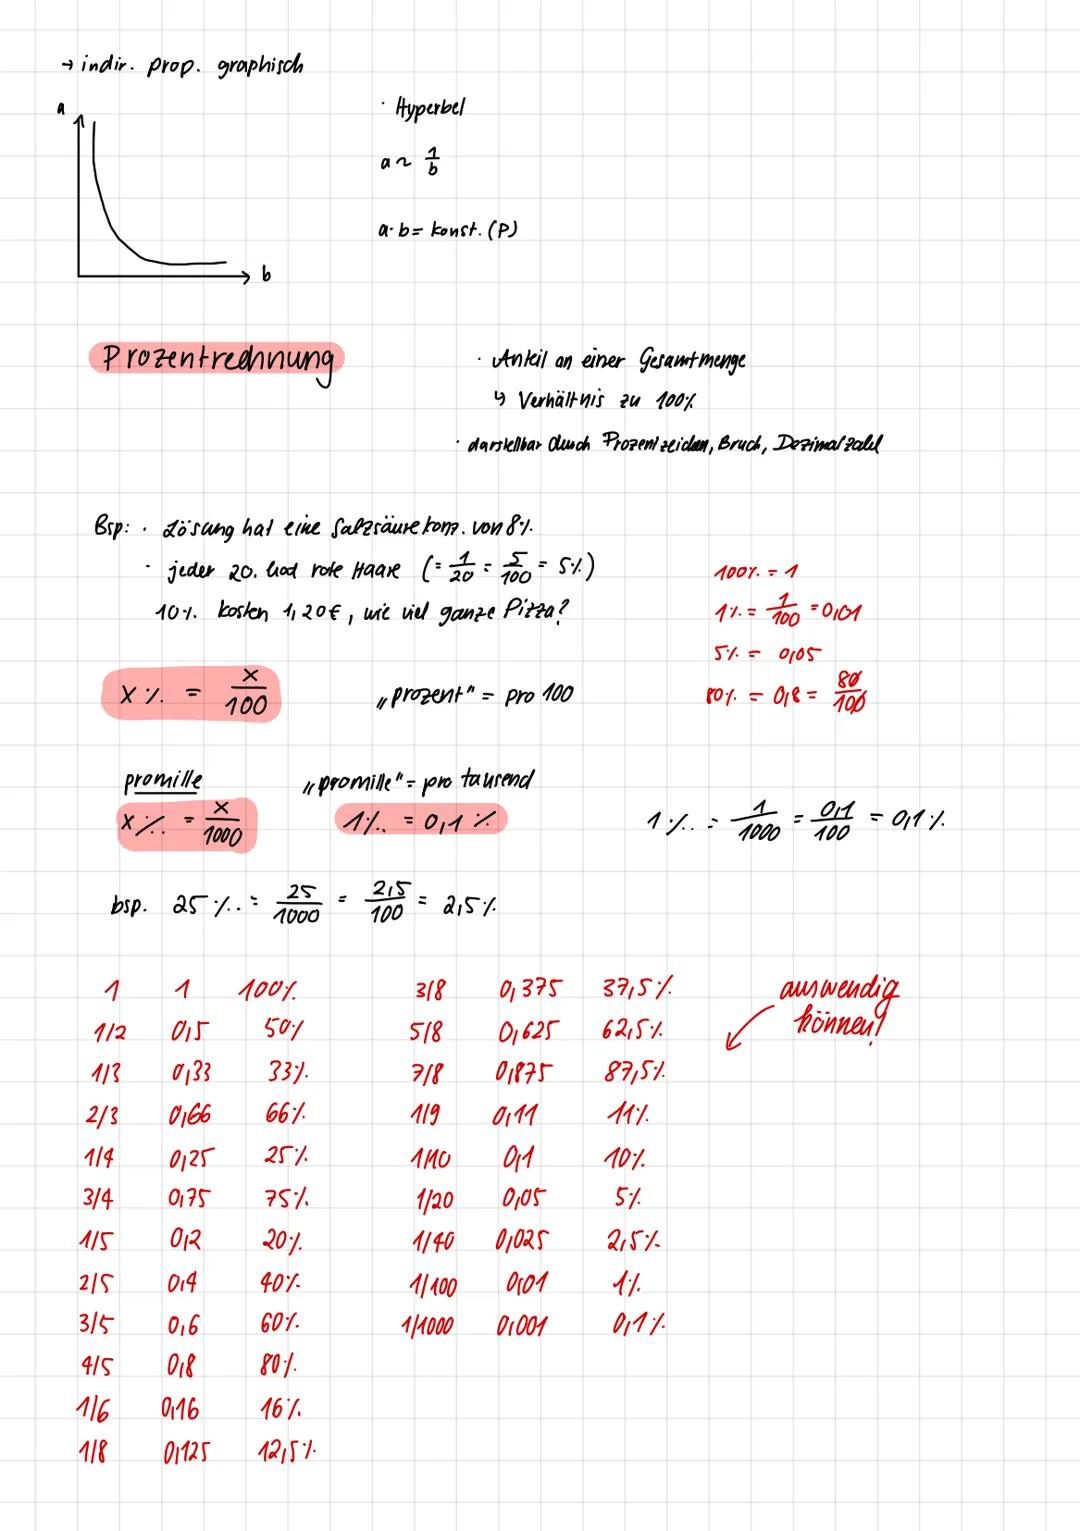 → indir. prop. graphisch
a
· Hyperbel
a ~ 1/b
a·b = konst. (P)
b
Prozentrechnung
· Anteil an einer Gesamtmenge
↳ Verhältnis zu 100%
· darstellbar durch Prozentzeichen, Bruch, Dezimalzahl
Bsp: · Lösung hat eine Salzsäurekonz. von 8%.
· jeder 20. hat rote Haare (= 1/20 = 5/100 = 5%)
10% kosten 1,20€, wie viel ganze Pizza?
100% = 1
1% = 1/100 = 0,01
5% = 0,05
80% = 0,8 = 80/100
x % = x/100
„prozent" = pro 100
promille
„promille" = pro tausend
x ‰ = x/1000
1‰ = 0,1 %
1‰ = 1/1000 = 0,1/100 = 0,1%
bsp. 25‰ = 25/1000 = 2,5/100 = 2,5%
1 1 100%
1/2 0,5 50%
1/3 0,33 33%
2/3 0,66 66%
1/4 0,25 25%
3/4 0,75 75%
1/5 0,2 20%
2/5 0,4 40%
3/5 0,6 60%
4/5 0,8 80%
1/6 0,16 16%
1/8 0,125 12,5%
3/8 0,375 37,5%
5/8 0,625 62,5%
7/8 0,875 87,5%
1/9 0,11 11%
1/10 0,1 10%
1/20 0,05 5%
1/40 0,025 2,5%
1/100 0,01 1%
1/1000 0,001 0,1%
auswendig
können!